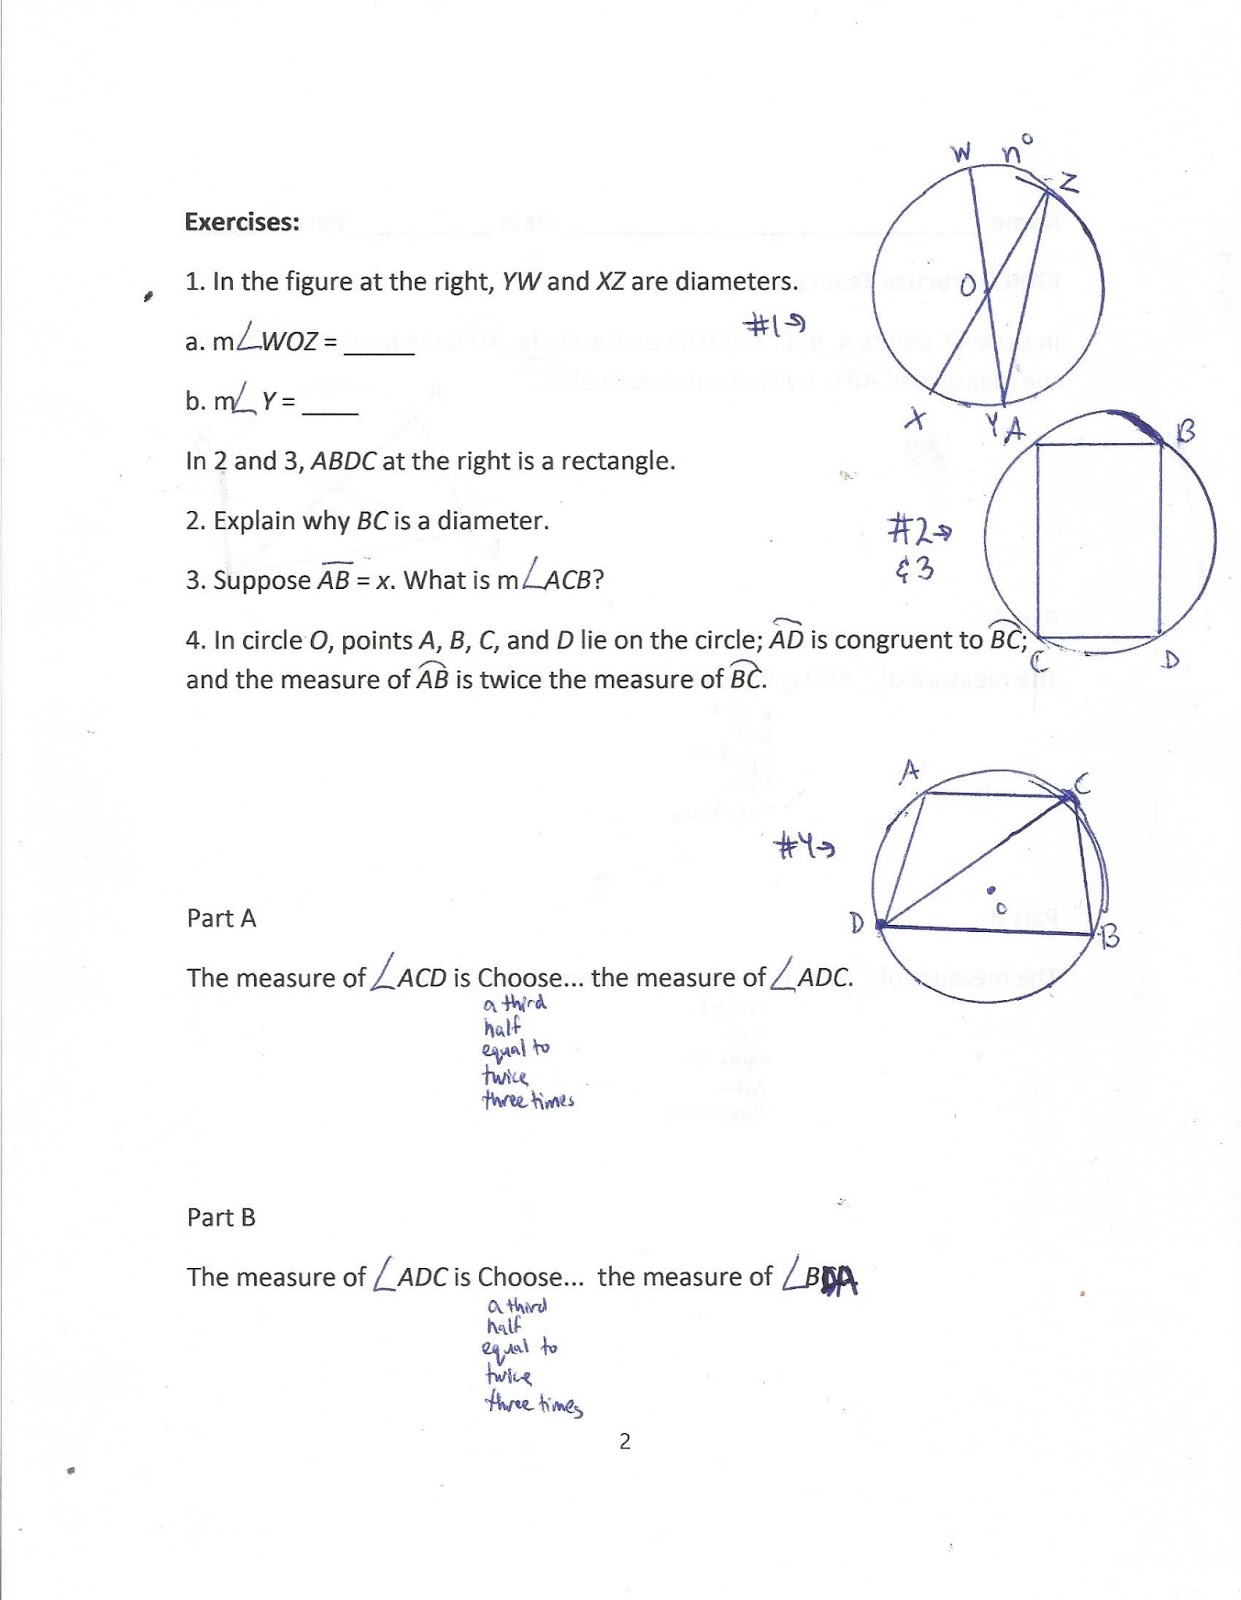 W n°
Z
Exercises:
1. In the figure at the right, YW and XZ are diameters.
O
#1→
a. m∠WOZ = _____
b. m∠ Y = ____
X Y
A B
In 2 and 3, ABDC at the right is a rectangle.
2. Explain why BC is a diameter.
#2→
&3
3. Suppose AB = x. What is m∠ACB?
4. In circle O, points A, B, C, and D lie on the circle; AD is congruent to BC;
C D
and the measure of AB is twice the measure of BC.
A C
#4→
O
D B
Part A
The measure of ∠ACD is Choose... the measure of ∠ADC.
a third
half
equal to
twice
three times
Part B
The measure of ∠ADC is Choose... the measure of ∠BDA
a third
half
equal to
twice
three times
2